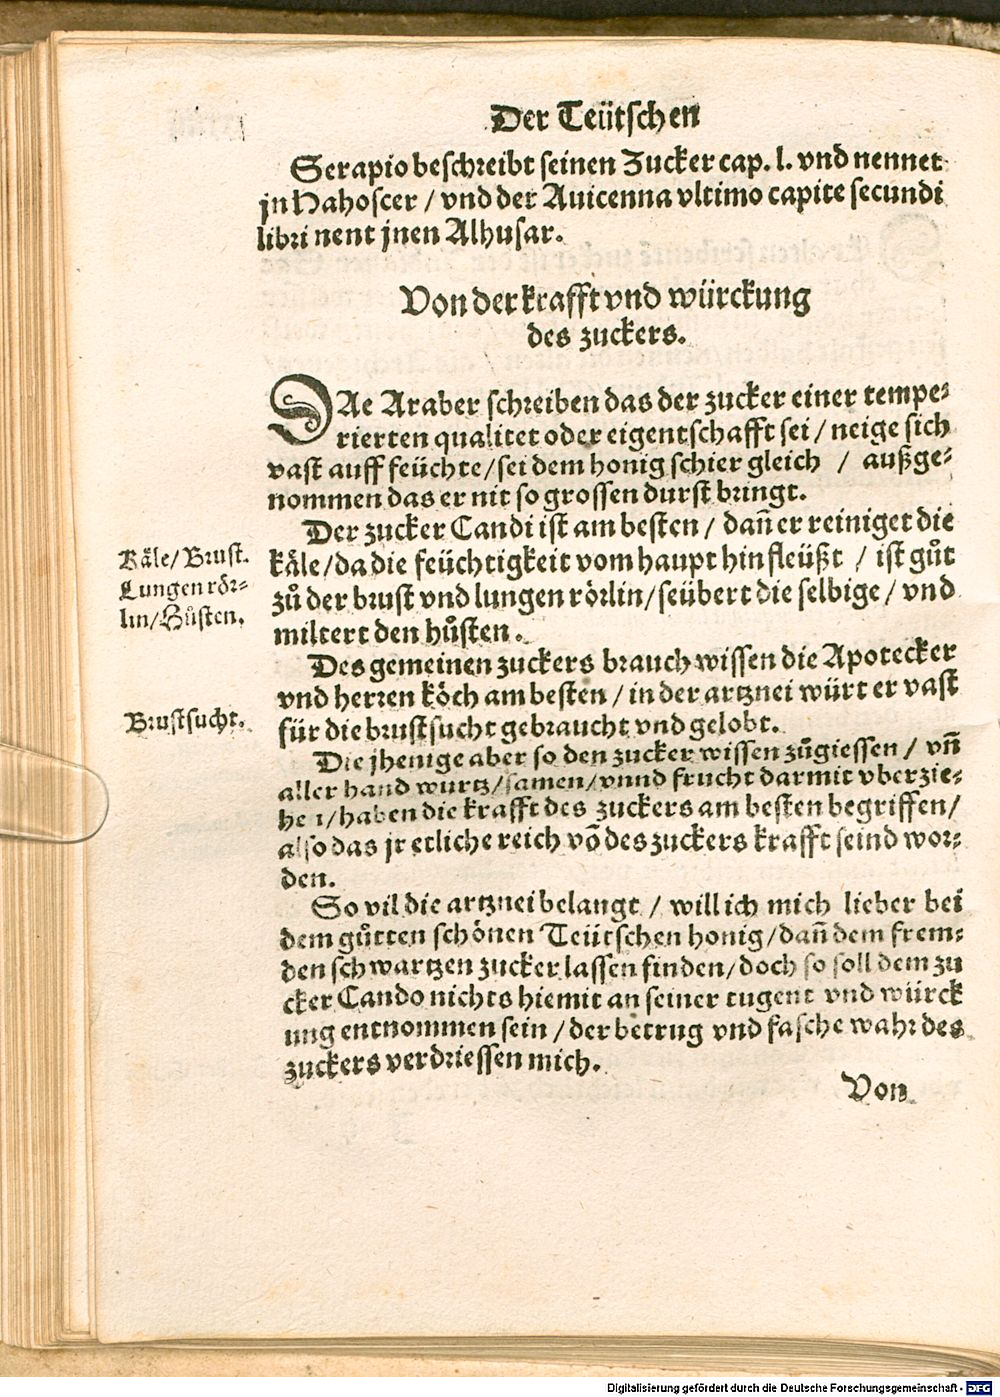 Der Teütschen
Serapio beschreibt seinen Zucker cap. l. vnd nennet
jn Hahoscer / vnd der Auicenna vltimo capite secundi
libri nent jnen Alhusar.
Von der krafft vnd würckung
des zuckers.
DAe Araber schreiben das der zucker einer tempe⸗
rierten qualitet oder eigentschafft sei / neige sich
vast auff feüchte/sei dem honig schier gleich / außge⸗
nommen das er nit so grossen durst bringt.
Der zucker Candi ist am besten / dañ er reiniget die
Käle/Brust.
käle/da die feüchtigkeit vom haupt hin fleüßt / ist gůt
Lungen rör⸗
zů der brust vnd lungen rörlin/seübert die selbige / vnd
lin/Hůsten.
miltert den hůsten.
Des gemeinen zuckers brauch wissen die Apotecker
vnd herren köch am besten / in der artznei würt er vast
Brustsucht.
für die brustsucht gebraucht vnd gelobt.
Die jhenige aber so den zucker wissen zůgiessen / vñ
aller hand wurtz/samen/vnnd frucht darmit vberzie⸗
hen/haben die krafft des zuckers am besten begriffen/
also das jr etliche reich võ des zuckers krafft seind wor⸗
den.
So vil die artznei belangt / will ich mich lieber bei
dem gůtten schönen Teütschen honig/dañ dem frem⸗
den schwartzen zucker lassen finden/doch so soll dem zu
cker Cando nichts hiemit an seiner tugent vnd würck
ung entnommen sein / der betrug vnd fasche wahr des
zuckers verdriessen mich.
Von
Digitalisierung gefördert durch die Deutsche Forschungsgemeinschaft - DFG